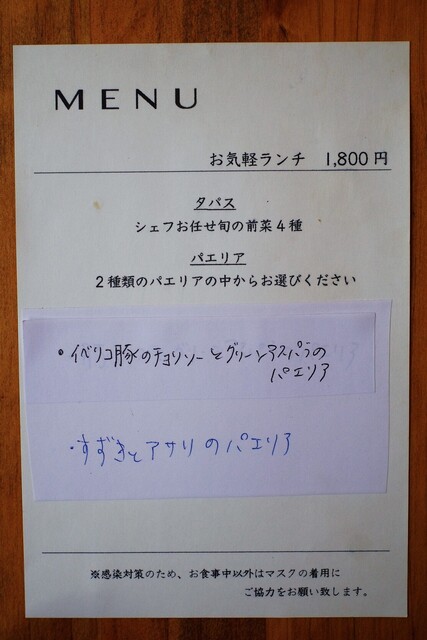 MENU
お気軽ランチ 1,800円
タパス
シェフお任せ旬の前菜4種
パエリア
2種類のパエリアの中からお選びください
・イベリコ豚のチョリソーとグリーンアスパラの
パエリア
・すずきとアサリのパエリア
※感染対策のため、お食事中以外はマスクの着用に
ご協力をお願い致します。